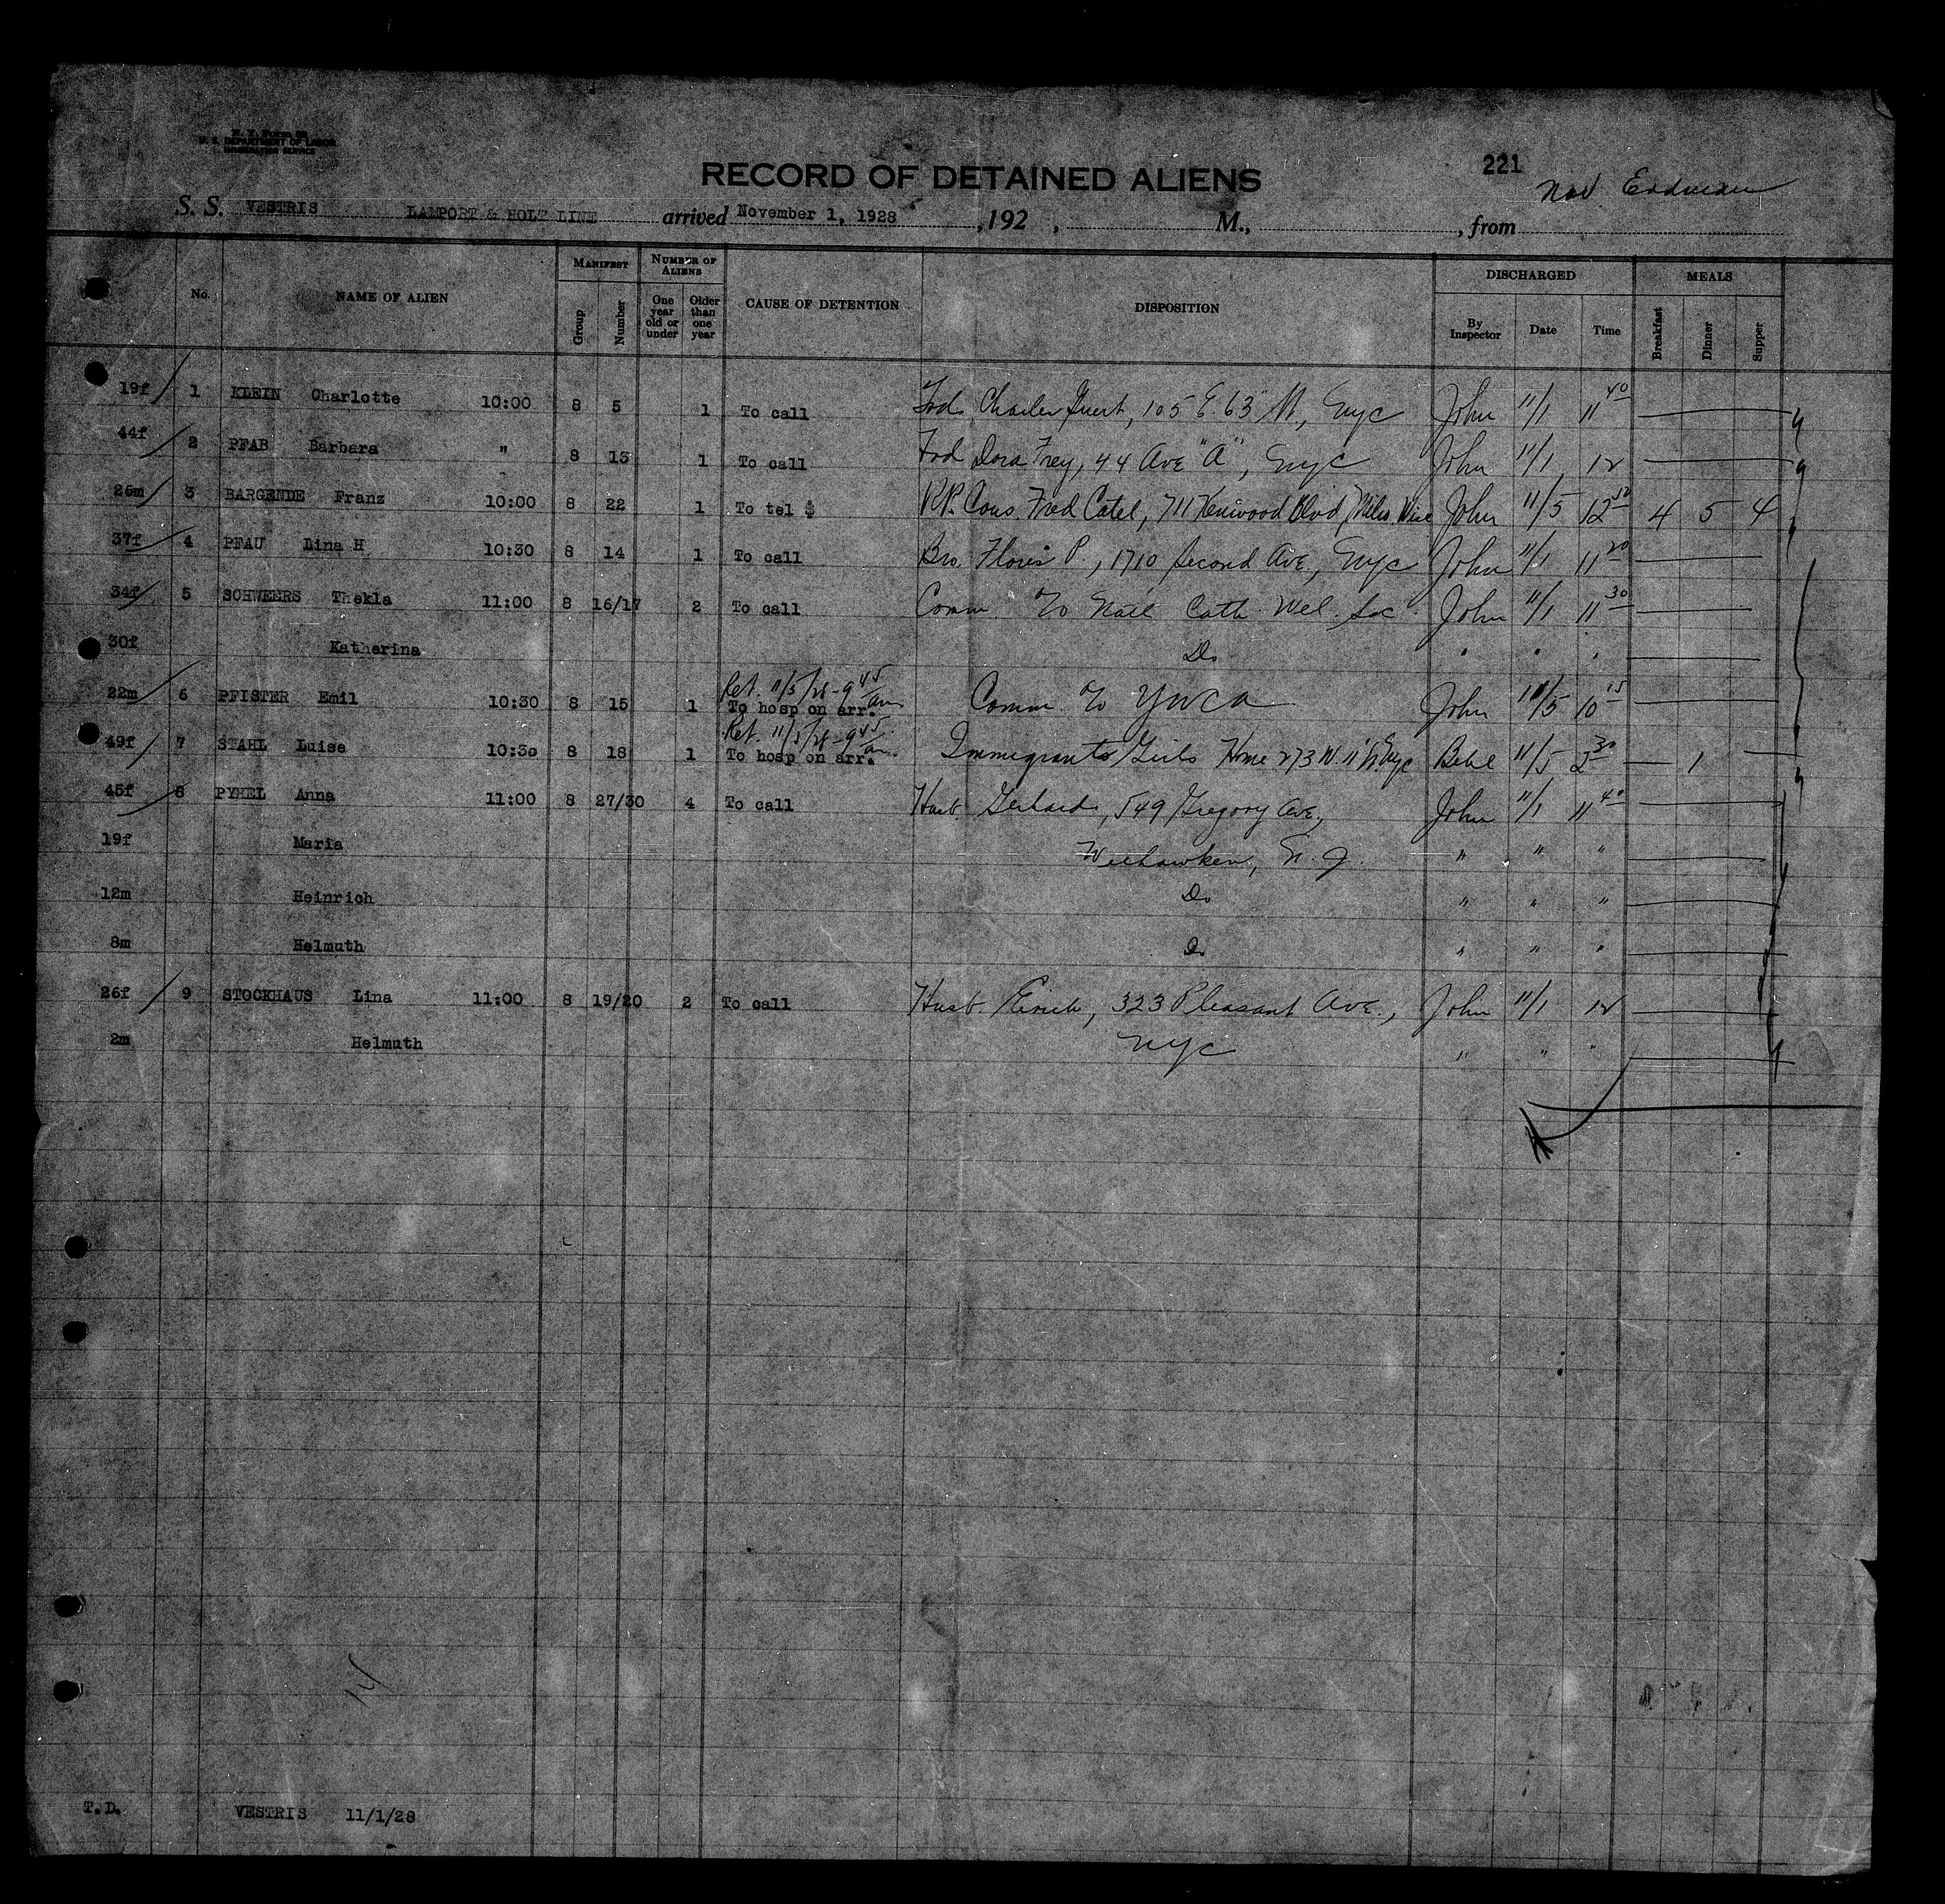 N. Y. Form 99
U. S. DEPARTMENT OF LABOR
IMMIGRATION SERVICE
221
RECORD OF DETAINED ALIENS
S. S. VESTRIS LAMPORT & HOLT LINE arrived November 1, 1928 , 192 , M., , from
No. NAME OF ALIEN MANIFEST Group Number NUMBER OF ALIENS One year old or under Older than one year CAUSE OF DETENTION DISPOSITION DISCHARGED By Inspector Date Time MEALS Breakfast Dinner Supper
19f 1 KLEIN Charlotte 10:00 8 5 1 To call Charles 105 E. 63 St, NYC John 11/1 11 40
44f 2 PFAB Barbara " 8 13 1 To call Dora Frey, 44 Ave "A", NYC John 11/1 12
26m 3 BARGENDE Franz 10:00 8 22 1 To tel $ Cous. Fred Catel, 711 Kenwood Blvd, Milw. Wisc John 11/5 12 50 4 5 4
37f 4 PFAU Lina H 10:30 8 14 1 To call Bro. Flores P., 1710 Second Ave., NYC John 11/1 11 20
34f 5 SCHWEERS Thekla 11:00 8 16/17 2 To call Comm. To Natl Cath Wel. Soc. John 11/1 11 30
30f Katherina Do " " "
22m 6 PFISTER Emil 10:30 8 15 1 Ret. 11/5/28-9 45 am To hosp on arr. Comm. To YWCA John 11/5 10 15
49f 7 STAHL Luise 10:30 8 18 1 Ret. 11/5/28-9 45 am To hosp on arr. Immigrants Girls Home 273 W. 11 St. NYC 11/5 2 30 1
45f 8 PYHEL Anna 11:00 8 27/30 4 To call Husb. Gerhard, 549 Gregory Ave, John 11/1 11 40
19f Maria Weehawken, N. J. " " "
12m Heinrich Do " " "
8m Helmuth Do " " "
26f 9 STOCKHAUS Lina 11:00 8 19/20 2 To call Husb. 323 Pleasant Ave., John 11/1 12
2m Helmuth NYC " " "
14
T.D. VESTRIS 11/1/28